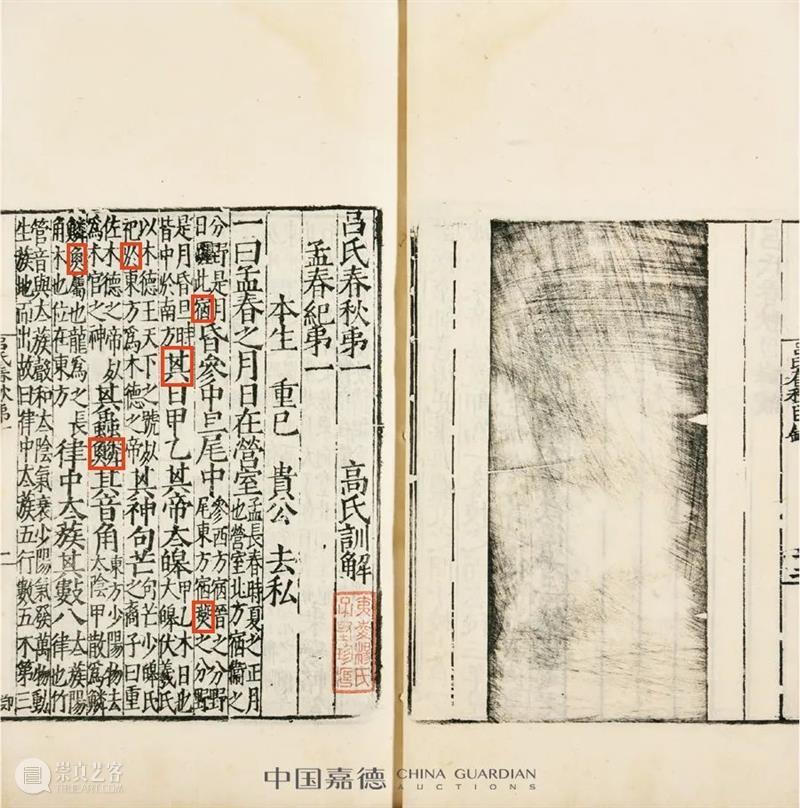 呂氏春秋目錄
呂氏春秋弟一 高氏訓解
孟春紀弟一
本生 重己 貴公 去私
一曰孟春之月日在營室孟長春時夏之正月也營室北方宿衞之
分野是月日躔此宿昏參中旦尾中參西方宿晉之分野尾東方宿燕之分野
是月昏旦時皆中於南方其日甲乙其帝太皞甲乙木日也大皞伏羲氏
以木德王天下之號死祀於東方爲木德之帝其神句芒句芒少皞氏之裔子曰重
佐木德之帝死爲木官之神其蟲鱗其音角東方少陽物去太陰甲散爲鱗
鱗魚屬也龍爲之長角木也位在東方律中太族其數八太族陽律也竹
管音與太族聲和太陰氣衰少陽氣發萬物動生蔟地而出故曰律中太族五行數五不第三
呂氏春秋弟一
二
崇真艺客
TRUEART.COM
中国嘉德 CHINA GUARDIAN
AUCTIONS